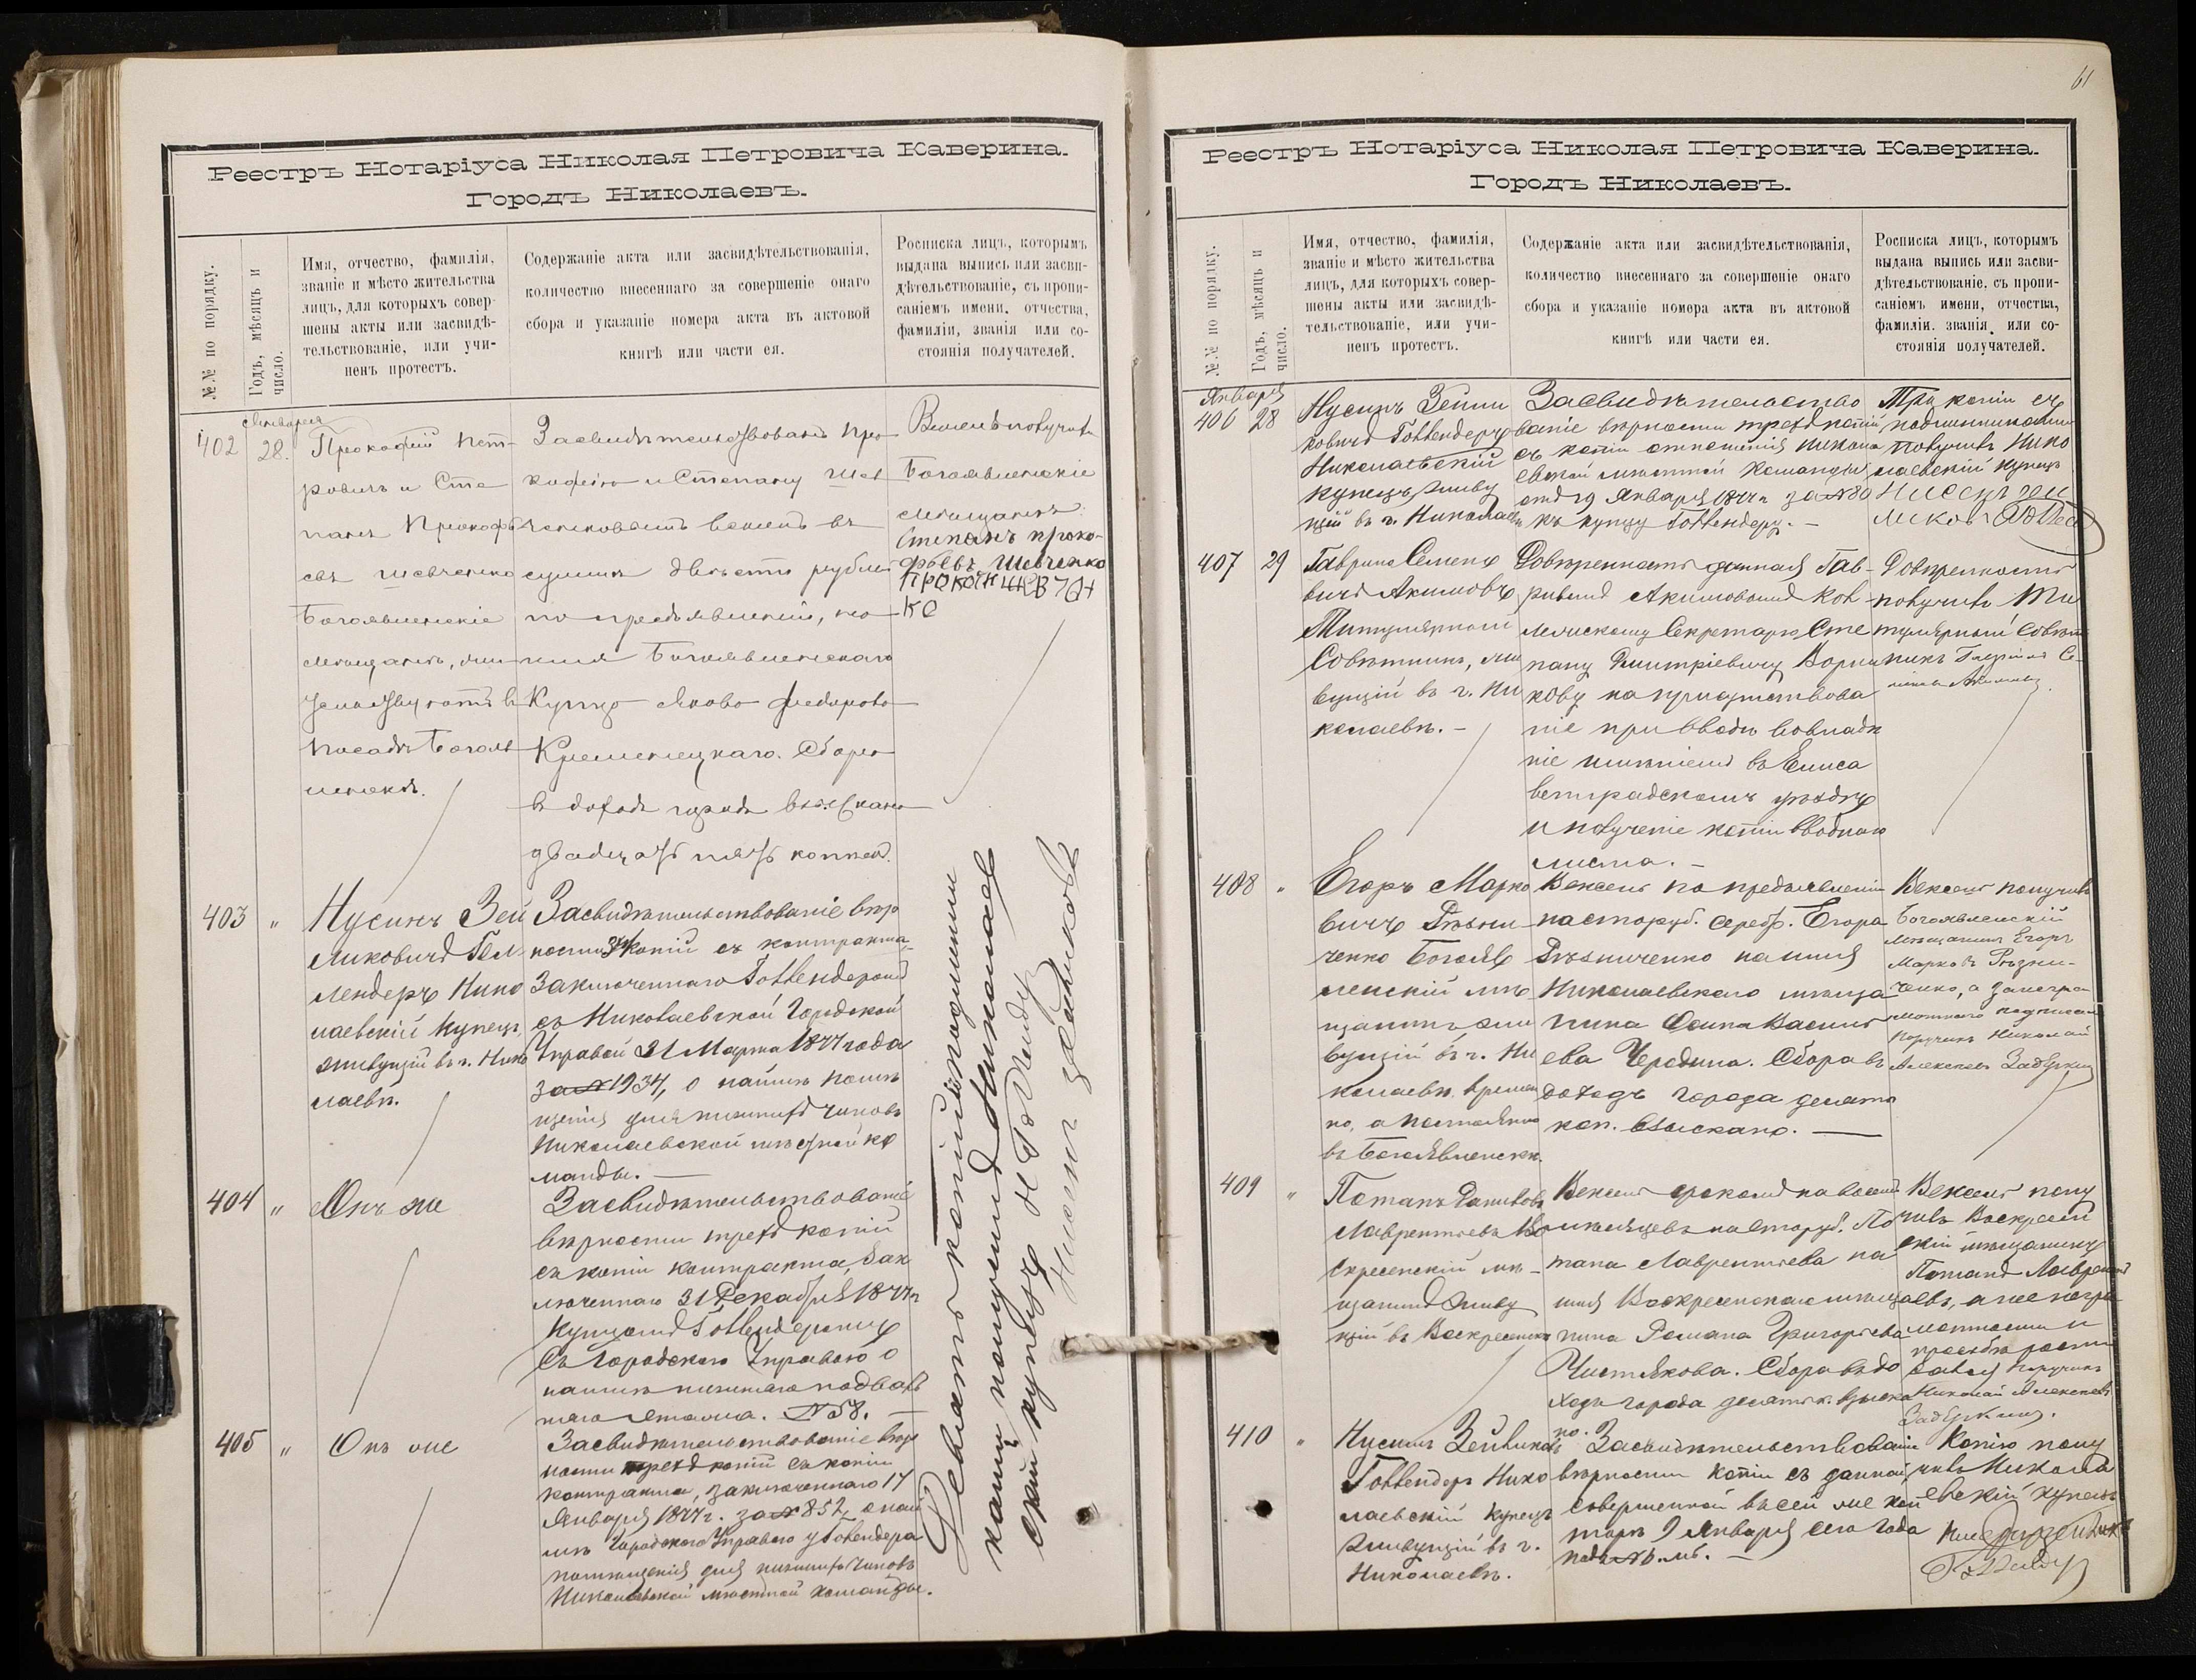 Реестръ Нотаріуса Николая Петровича Каверина.
Городъ Николаевъ.
№№ по порядку.
Годъ, мѣсяцъ и число.
Имя, отчество, фамилія,
званіе и мѣсто жительства
лицъ, для которыхъ совер-
шены акты или засвидѣ-
тельствованіе, или учи-
ненъ протестъ.
Содержаніе акта или засвидѣтельствованія,
количество внесеннаго за совершеніе онаго
сбора и указаніе номера акта въ актовой
книгѣ или части ея.
Росписка лицъ, которымъ
выдана выпись или засви-
дѣтельствованіе, съ пропи-
саніемъ имени, отчества,
фамиліи, званія или со-
стоянія получателей.
Января
402 28.
Прокофій Пет-
ровичъ и Сте
панъ Прокофь
евъ Шевченко
Богоявленскіе
мѣщане, жи-
посадѣ Богояв
ленскѣ.
Засвидѣтельствованъ Про
кофію и Степану Шев
ченковымъ вексель въ
суммѣ двѣсти рублей
по предъявленію, на
имя Богоявленскаго
Купца Якова Федорова
Кременецкаго. Сбора
въ доходъ города взыскано
двадцать пять копѣекъ.
Вексель получилъ
Богоявленскіе
мѣщане
Степанъ Проко-
фьевъ Шевченко
403 "
Нусинъ Зей
ликовичъ Гел
лендеръ Нико
лаевскій Купецъ
живущій въ г. Нико
лаевѣ.
Засвидѣтельствованіе вѣр
ности 3хъ копій съ контракта
заключеннаго Готлендеромъ
съ Николаевской Городской
Управой 21 Марта 1877 года
за № 1934, о наймѣ помѣ
щенія для нижнихъ чиновъ
Николаевской мѣстной ко
манды.
404 "
Онъ же
Засвидѣтельствованіе
вѣрности трехъ копій
съ копіи контракта, зак
люченнаго 31 Декабря 1877 г
купцомъ Готлендеромъ
Съ Городскою Управою о
наймѣ нижняго подваль
наго этажа. № 58.
405 "
Онъ же
Засвидѣтельствованіе вѣр
ности трехъ копій съ копіи
контракта, заключеннаго 17
Января 1877 г. за № 852, о най
мѣ Городскою Управою у Готлендера
помѣщенія для нижнихъ чиновъ
Николаевской мѣстной команды.
Девять копій съ подлинными
копіи получилъ Николаев
скій купецъ Н Готлендеръ
61
Реестръ Нотаріуса Николая Петровича Каверина.
Городъ Николаевъ.
№№ по порядку.
Годъ, мѣсяцъ и число.
Имя, отчество, фамилія,
званіе и мѣсто жительства
лицъ, для которыхъ совер-
шены акты или засвидѣ-
тельствованіе, или учи-
ненъ протестъ.
Содержаніе акта или засвидѣтельствованія,
количество внесеннаго за совершеніе онаго
сбора и указаніе номера акта въ актовой
книгѣ или части ея.
Росписка лицъ, которымъ
выдана выпись или засви-
дѣтельствованіе, съ пропи-
саніемъ имени, отчества,
фамиліи. званія или со-
стоянія получателей.
Января
406 28
Нусинъ Зейли
ковичъ Готлендеръ
Николаевскій
купецъ, живу
щій въ г. Николаевѣ
Засвидѣтельство
ваніе вѣрности трехъ копій
съ копіи отношенія Никола
евской мѣстной команды
отъ 19 Января 1877 г за № 80
къ купцу Готлендеру. -
Три копіи съ
подлинниками
получилъ Нико
лаевскій купецъ
407 29
Гаврилъ Семено
вичъ Акимовъ,
Титулярный
Совѣтникъ, жи
вущій въ г. Ни
колаевѣ. -
Довѣренность данная Гав-
риломъ Акимовымъ Кол-
лежскому Секретарю Сте
пану Дмитріевичу Ворни
кову на присутствова
ніе при вводѣ во владѣ
ніе имѣніемъ въ Елиса
ветградскомъ уѣздѣ
и полученіе копіи вводнаго
листа. -
Довѣренность
получилъ Ти
тулярный Совѣт
никъ Гаврилъ Се-
меновъ Акимовъ
408 "
Егоръ Марко
вичъ Рѣзни
ченко Богояв
ленскій мѣ
щанинъ жи
вущій въ г. Ни
колаевѣ времен
но, а постоянно
въ Богоявленскѣ.
Вексель по предъявленію
на сто руб. серебр. Егора
Рѣзниченко на имя
Николаевскаго мѣща
нина Осипа Василь
ева Чередина. Сбора въ
доходъ города десять
коп. взыскано.
Вексель получилъ
Богоявленскій
мѣщанинъ Егоръ
Марковъ Рѣзни-
ченко, а за негра
мотнаго подписалъ
поручикъ Николай
Алексѣевъ
409 "
Потапъ Даниловъ
Лаврентьевъ Во
скресенскій мѣ-
щанинъ живу
щій въ Воскресенскѣ
Вексель срокомъ на восемь
мѣсяцевъ на сто руб. По
тапа Лаврентьева на
имя Воскресенскаго мѣща
нина Романа Григорьева
Чистякова. Сбора въ до
ходъ города десять к. взыска
но.
Вексель полу
чилъ Воскресен
скій мѣщанинъ
Потапъ Лаврен
евъ, а по негра
мотности и
просьбѣ роспи
сался поручикъ
Николай Алексѣевъ
410 "
Нусинъ Зейликовъ
Готлендеръ Нико
лаевскій купецъ
живущій въ г.
Николаевѣ.
Засвидѣтельствованіе
вѣрности копіи съ данной
совершенной въ сей же кон
торѣ 9 Января сего года
Копію полу
чилъ Никола
евскій купецъ